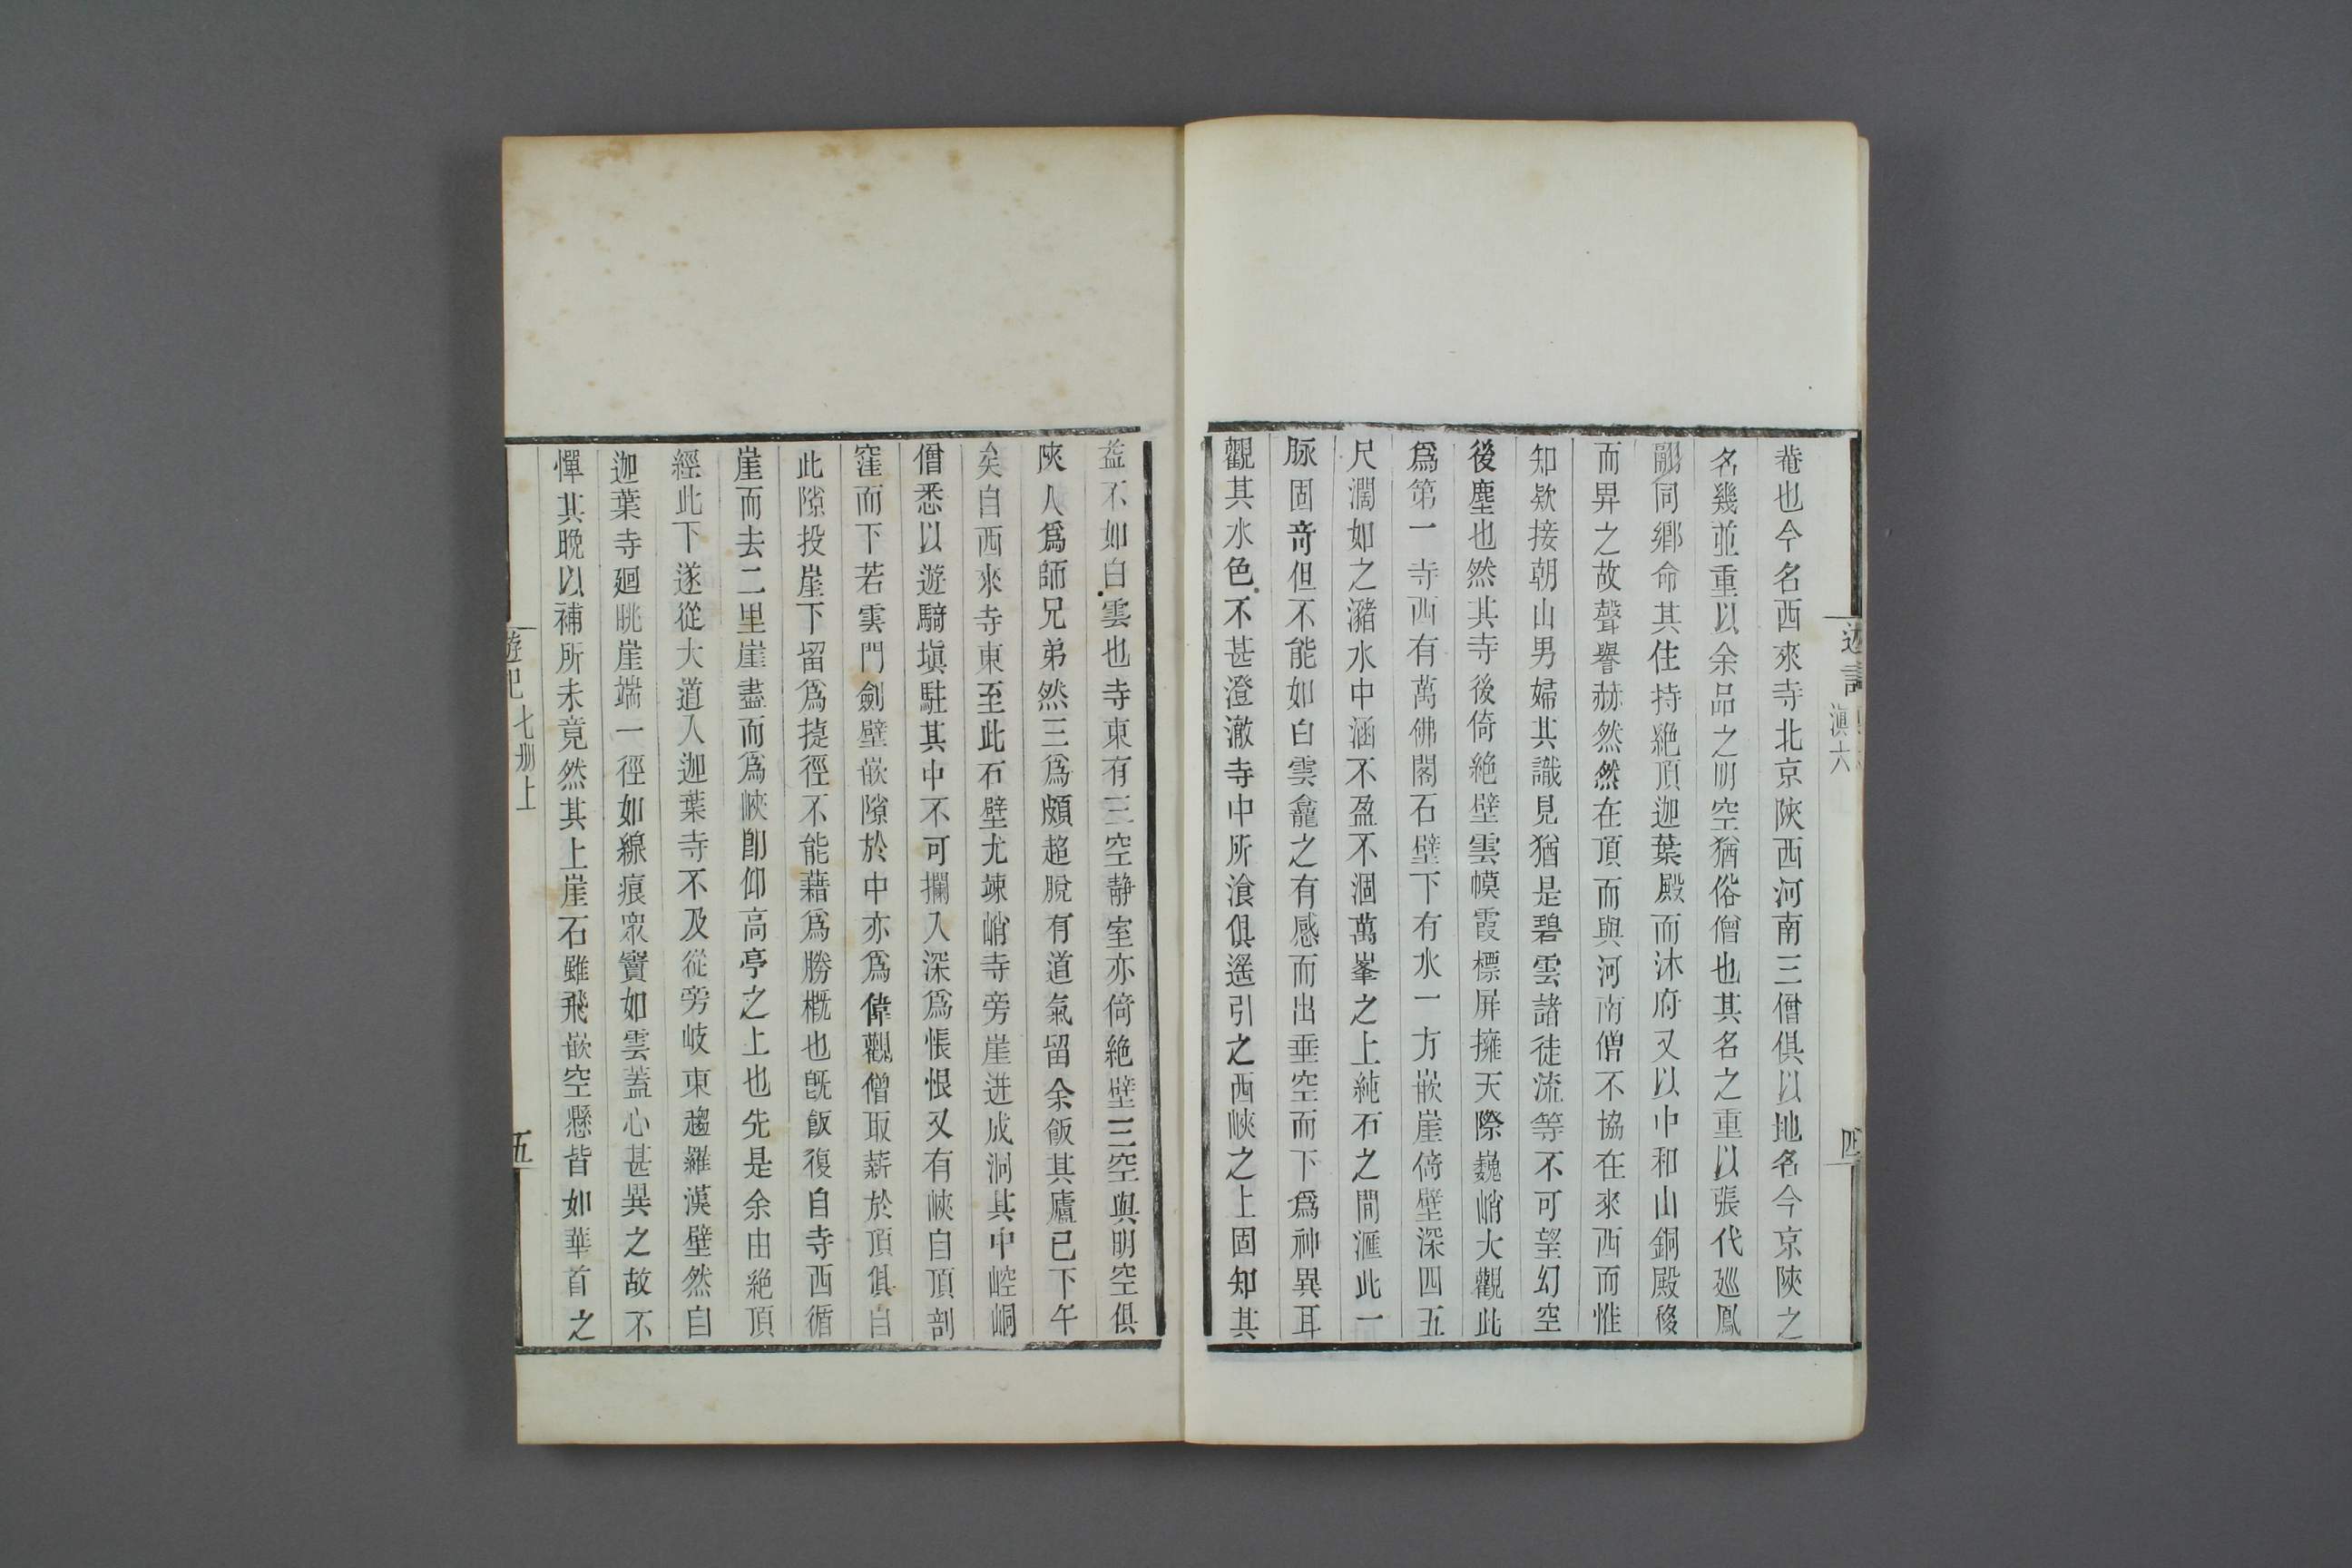 遊記 滇六
四
菴也今名西來寺北京陝西河南三僧俱以地名今京陝之
名幾並重以余品之明空猶俗僧也其名之重以張代廵鳳
翮同鄉命其住持絶頂迦葉殿而沐府又以中和山銅殿移
而畀之故聲譽赫然然在頂而與河南僧不協在來西而惟
知欵接朝山男婦其識見猶是碧雲諸徒流等不可望幻空
後塵也然其寺後倚絶壁雲幙霞標屏擁天際巍峭大觀此
爲第一寺西有萬佛閣石壁下有水一方嵌崖倚壁深四五
尺濶如之瀦水中涵不盈不涸萬峯之上純石之間滙此一
脉固奇但不能如白雲龕之有感而出垂空而下爲神異耳
觀其水色不甚澄澈寺中所飡俱遥引之西峽之上固知其
益不如白雲也寺東有三空静室亦倚絶壁三空與明空俱
陝人爲師兄弟然三爲頗超脫有道氣留余飯其廬已下午
矣自西來寺東至此石壁尤竦峭寺旁崖迸成洞其中崆峒
僧悉以遊騎塡駐其中不可攔入深爲悵恨又有峽自頂剖
窪而下若雲門劍壁嵌隙於中亦爲偉觀僧取薪於頂俱自
此隙投崖下留爲捷徑不能藉爲勝概也旣飯復自寺西循
崖而去二里崖盡而爲峽卽仰高亭之上也先是余由絶頂
經此下遂從大道入迦葉寺不及從旁岐東趨羅漢壁然自
迦葉寺廻眺崖端一徑如線痕衆竇如雲蓋心甚異之故不
憚其晩以補所未竟然其上崖石雖飛嵌空懸皆如華首之
遊記 七册上
五